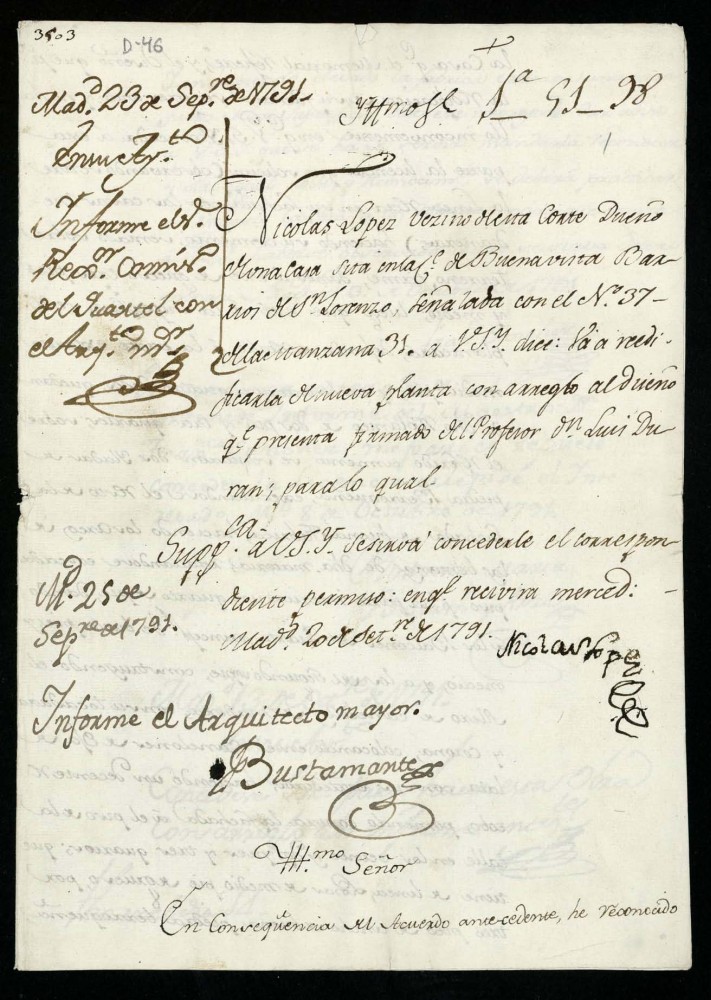 3503
D-46
1ª 51 98
Mad.d 23 de Sep.re de 1791.
En su Ay.to
Informe el S.r
Rex.or Comis.o
del Quartel con
el Arq.to m.or
Yttmo Sr
Nicolas Lopez vezino de esta Corte Dueño
de una Casa sita en la C.e de Buenavista Bar-
rios de Sn. Lorenzo, señalada con el N.º 37-
de la Manzana 31. a V.S.Y. dice: Va a reedi-
ficarla de nueva planta con arreglo al diseño
q.e presenta firmado del Profesor dn. Luis Du-
ran; para lo qual
Supp.ca a V.S.Y. se sirva concederle el correspon-
diente permiso: en q.e recivira merced: -
Mad.d 20 de Set.re de 1791.
Nicolas Lopez
M.d 25 de
Sep.re de 1791.
Informe el Arquitecto mayor.
Bustamante
Yttt.mo Señor
En Conseqüencia del Acuerdo antecedente, he reconocido